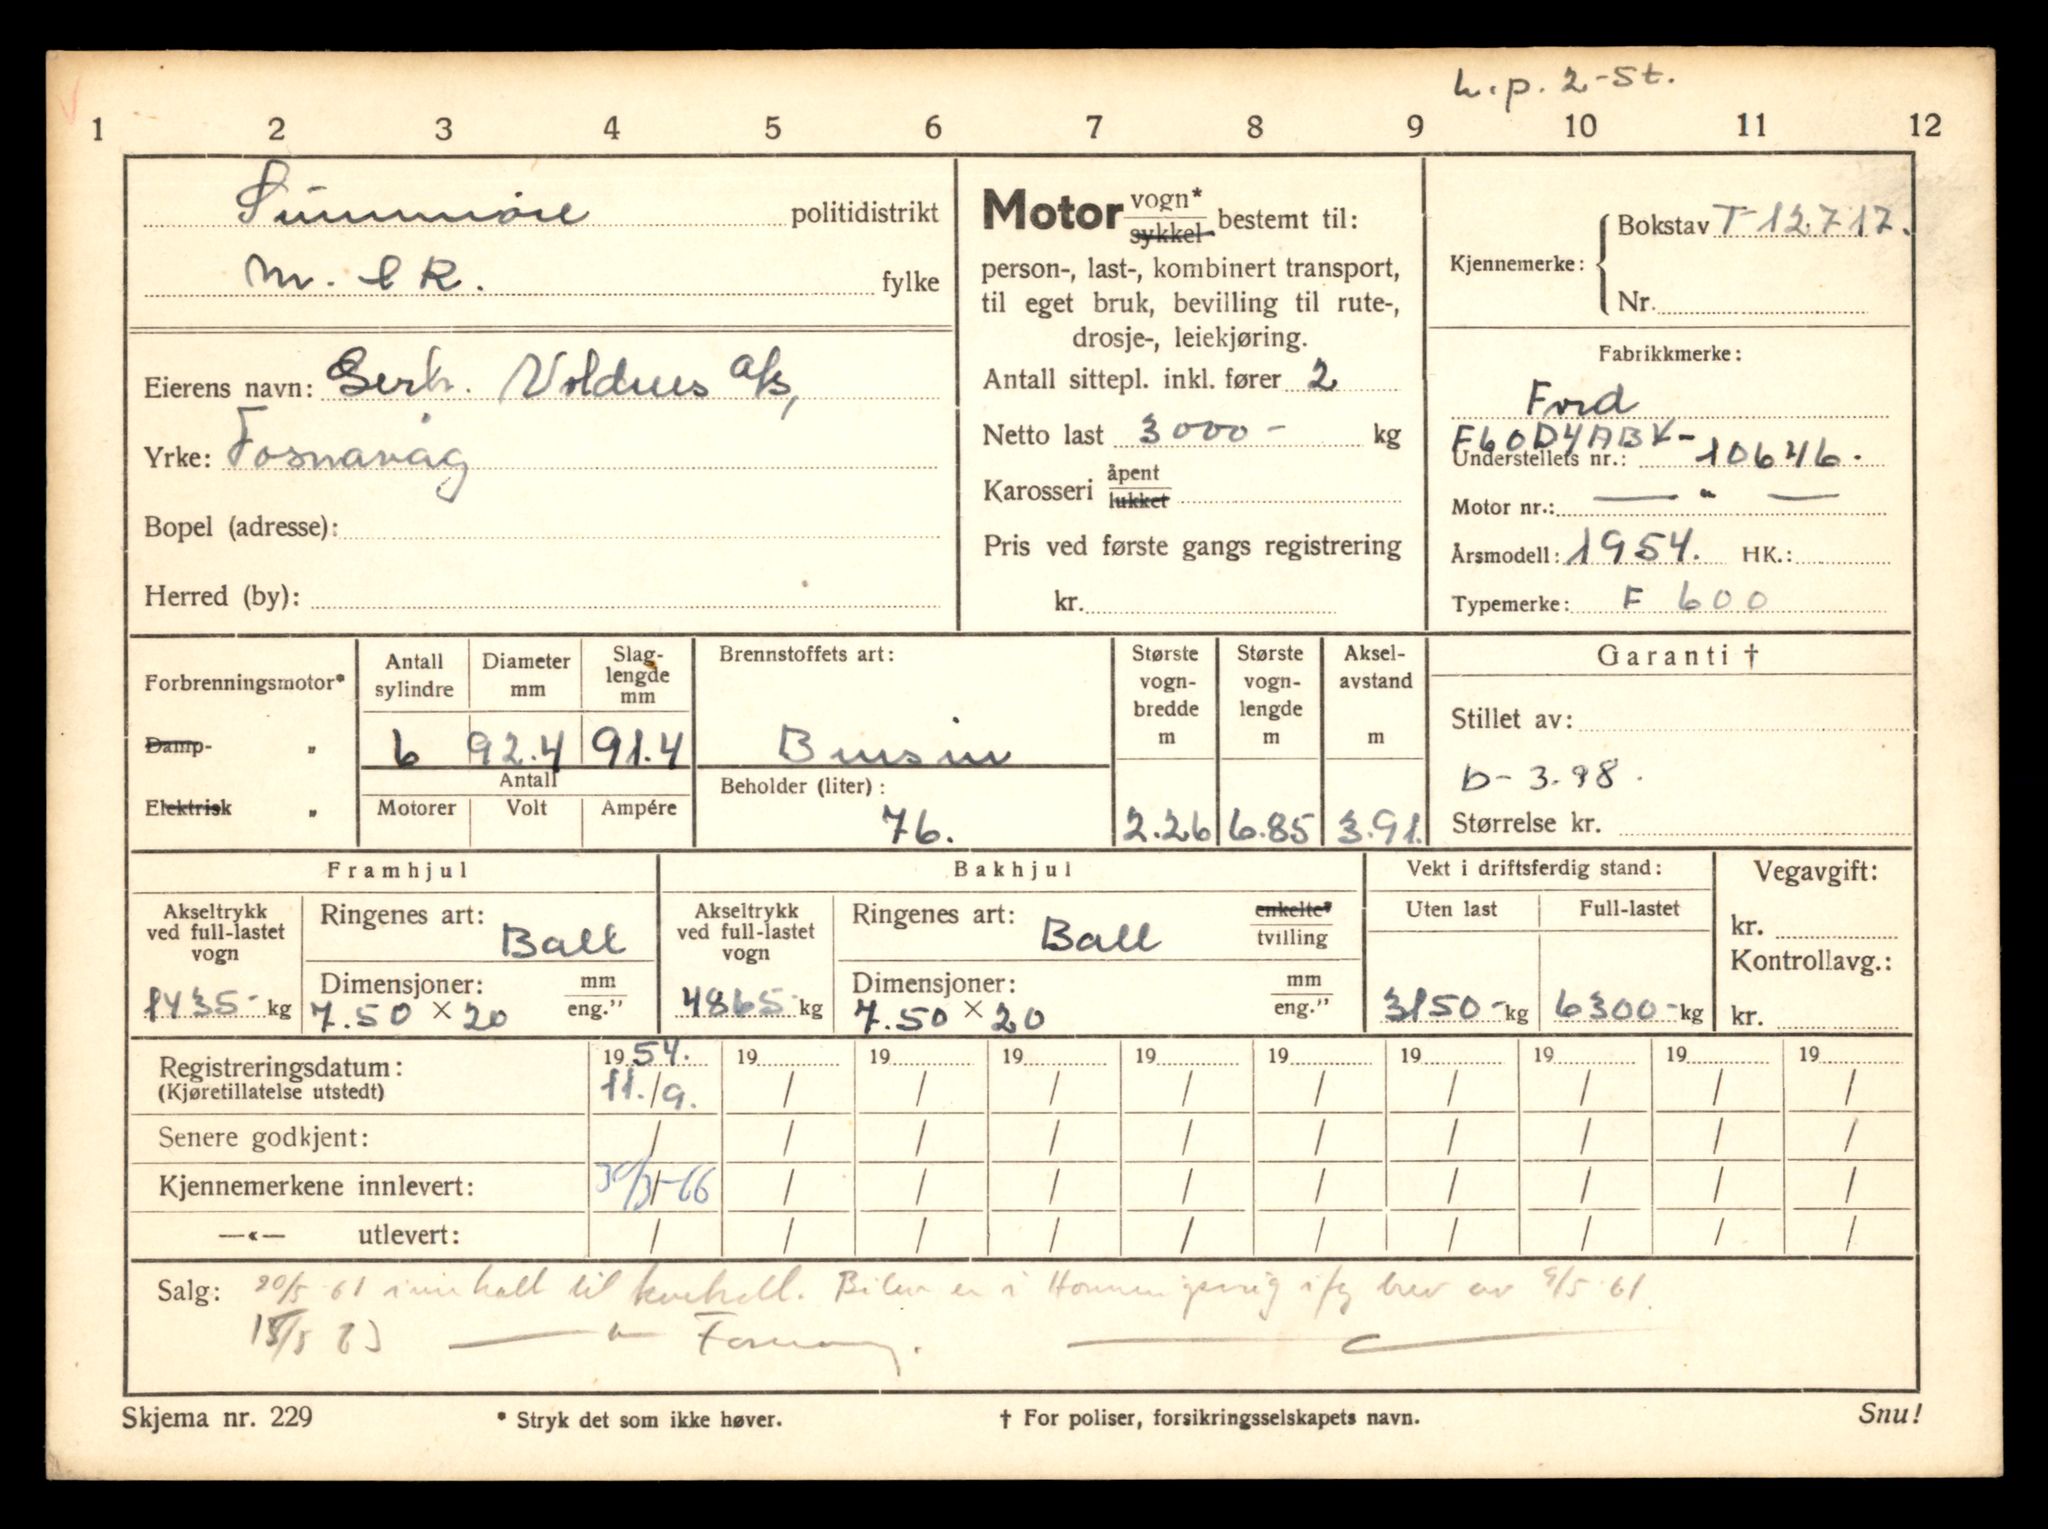 L.p. 2-St.
1 2 3 4 5 6 7 8 9 10 11 12
Sunnmøre politidistrikt
M. & R. fylke
Eierens navn: Gerh. Voldnes A/s,
Yrke: Fosnavåg
Bopel (adresse):
Herred (by):
Motor vogn* sykkel bestemt til:
person-, last-, kombinert transport,
til eget bruk, bevilling til rute-,
drosje-, leiekjøring.
Antall sittepl. inkl. fører 2
Netto last 3000- kg
Karosseri åpent lukket
Pris ved første gangs registrering
kr.
Kjennemerke: Bokstav T-12717.
Nr.
Fabrikkmerke:
Ford
F60D4ABK-
Understellets nr.: 10646.
Motor nr.: — " —
Årsmodell: 1954. HK.:
Typemerke: F 600
Forbrenningsmotor*
Damp- "
Elektrisk "
Antall sylindre Diameter mm Slag-lengde mm
6 92.4 91.4
Antall
Motorer Volt Ampére
Brennstoffets art:
Bensin
Beholder (liter):
76.
Største vogn-bredde m Største vogn-lengde m Aksel-avstand m
2.26 6.85 3.91.
Garanti †
Stillet av:
D-3.98.
Størrelse kr.
Framhjul
Akseltrykk ved full-lastet vogn
1435- kg
Ringenes art: Ball
Dimensjoner: mm eng."
7.50 × 20
Bakhjul
Akseltrykk ved full-lastet vogn
4865- kg
Ringenes art: Ball enkelte* tvilling
Dimensjoner: mm eng."
7.50 × 20
Vekt i driftsferdig stand:
Uten last Full-lastet
3150- kg 6300- kg
Vegavgift:
kr.
Kontrollavg.:
kr.
Registreringsdatum: 19 54. 19 19 19 19 19 19 19 19 19
(Kjøretillatelse utstedt) 11./9. / / / / / / / / /
Senere godkjent: / / / / / / / / / /
Kjennemerkene innlevert: 30/3-66 / / / / / / / / /
—«— utlevert: / / / / / / / / / /
Salg: 20/5-61 innkalt til kontroll. Bilen er i Honningsvåg ifg brev av 9/5-61.
15/5 63 — " — Fosnavåg. —
Skjema nr. 229 * Stryk det som ikke høver. † For poliser, forsikringsselskapets navn. Snu!